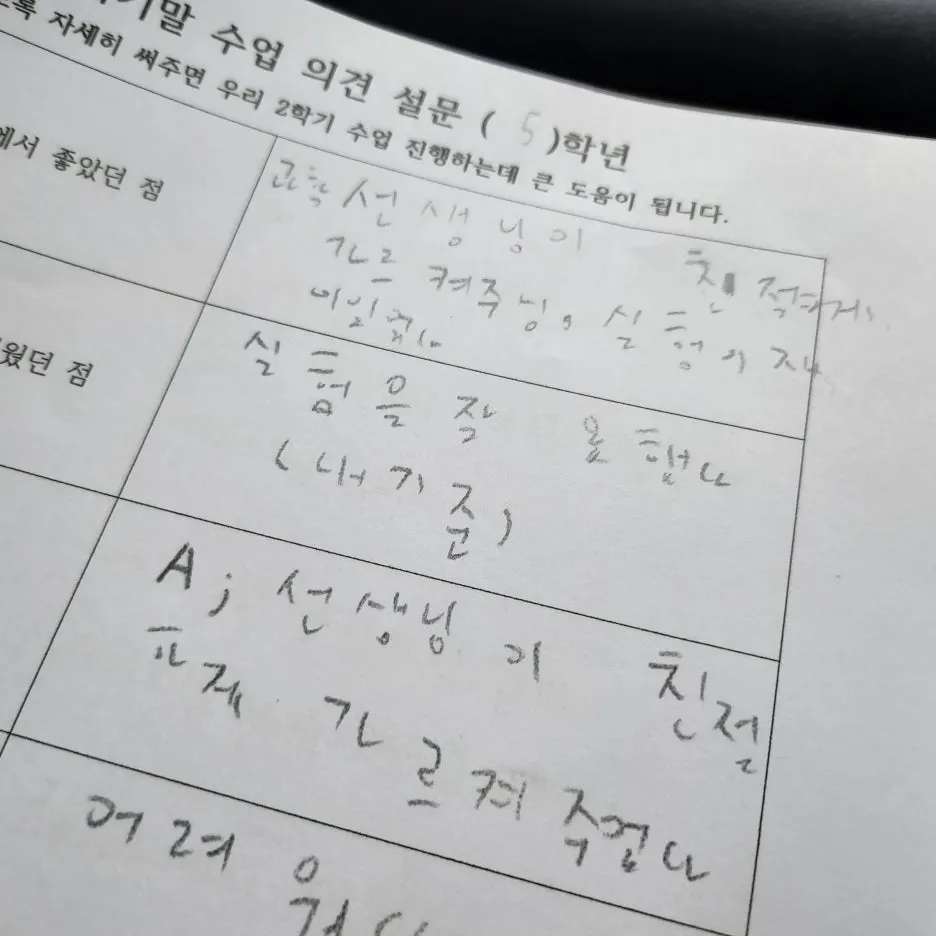 기말 수업 의견 설문 ( 5 )학년
록 자세히 써주면 우리 2학기 수업 진행하는데 큰 도움이 됩니다.
에서 좋았던 점
과학 선생님이 친절하게
가르켜주님. 실험이 재
미있
웠던 점
실험을 잘 못했다
(내 기준)
A; 선생님이 친절
하게 가르켜주었다
어려